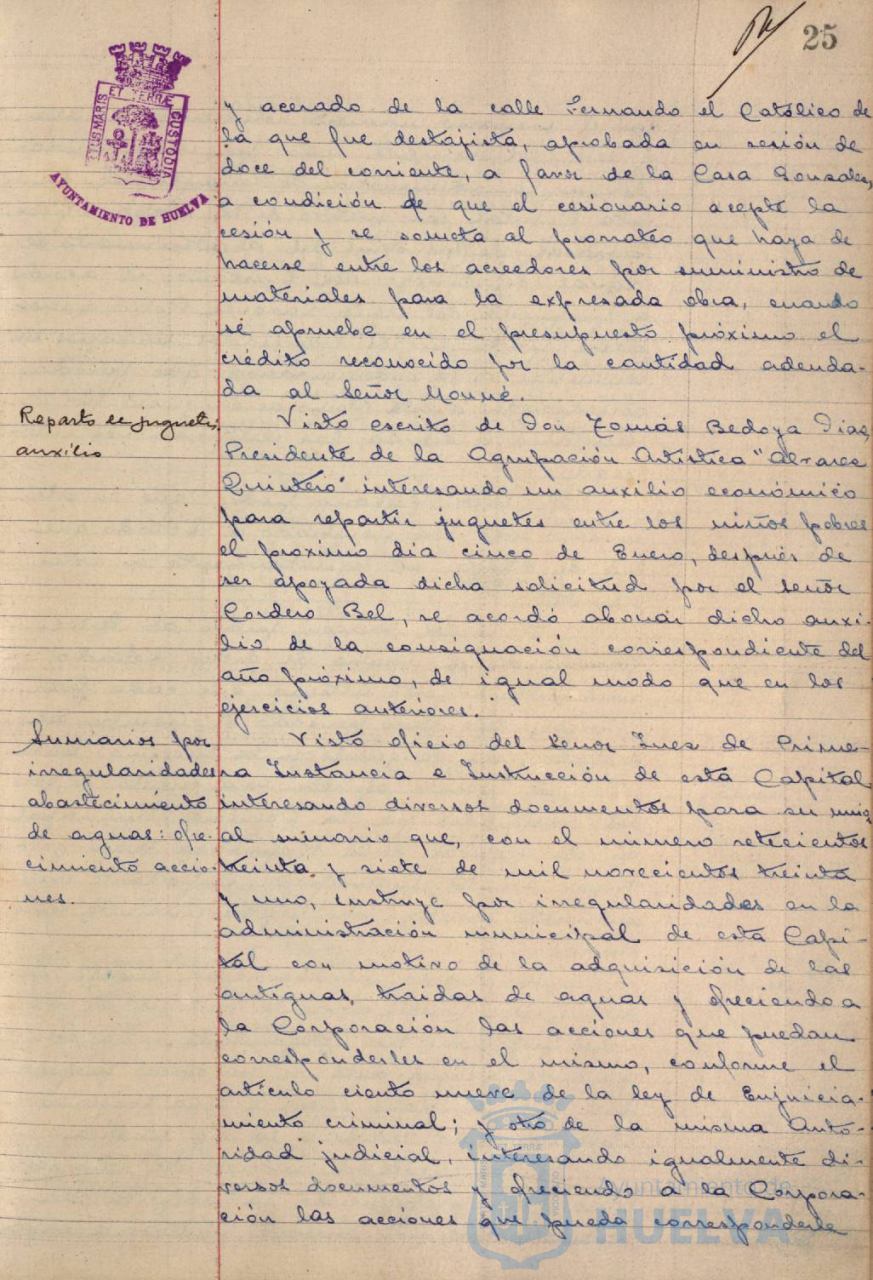 25
PORTUS MARIS ET TERRÆ CUSTODIA
AYUNTAMIENTO DE HUELVA
y acerado de la calle Fernando el Católico de
la que fue destajista, aprobada en sesión de
doce del corriente, a favor de la Casa Gonzalez,
a condición de que el cesionario acepte la
cesión y se someta al prorrateo que haya de
hacerse entre los acreedores por suministro de
materiales para la expresada obra, cuando
se apruebe en el presupuesto próximo el
crédito reconocido por la cantidad adeuda-
da al Señor Mouné.
Reparto de juguetes,
auxilio
Visto escrito de Don Tomás Bedoya Diaz,
Presidente de la Agrupación Artística "Alvarez
Quintero" interesando un auxilio económico
para repartir juguetes entre los niños pobres
el proximo dia cinco de Enero, después de
ser apoyada dicha solicitud por el Señor
Cordero Bel, se acordó abonar dicho auxi-
lio de la consignación correspondiente del
año próximo, de igual modo que en los
ejercicios anteriores.
Sumarios por
irregularidades
abastecimiento
de aguas: ofre-
cimiento accio-
nes.
Visto oficio del Señor Juez de Prime-
ra Instancia e Instrucción de esta Capital
interesando diversos documentos para su unión
al sumario que, con el número setecientos
treinta y siete de mil novecientos treinta
y uno, instruye por irregularidades en la
administración municipal de esta Capi-
tal con motivo de la adquisición de las
antiguas traidas de aguas y ofreciendo a
la Corporación las acciones que puedan
corresponderles en el mismo, conforme el
artículo ciento nueve de la ley de Enjuicia-
miento criminal; y otro de la misma Auto-
ridad judicial, interesando igualmente di-
versos documentos y ofreciendo a la Corpora-
ción las acciones que pueda corresponderle
Ayuntamiento de
HUELVA